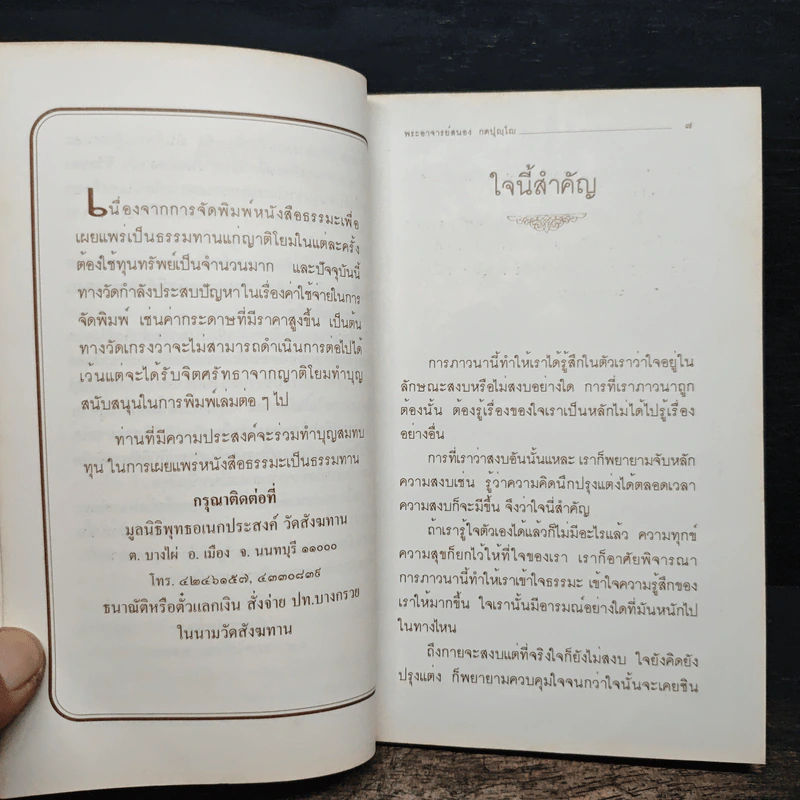 เนื่องจากการจัดพิมพ์หนังสือธรรมะเพื่อ
เผยแพร่เป็นธรรมทานแก่ญาติโยมในแต่ละครั้ง
ต้องใช้ทุนทรัพย์เป็นจำนวนมาก และปัจจุบันนี้
ทางวัดกำลังประสบปัญหาในเรื่องค่าใช้จ่ายในการ
จัดพิมพ์ เช่นค่ากระดาษที่มีราคาสูงขึ้น เป็นต้น
ทางวัดเกรงว่าจะไม่สามารถดำเนินการต่อไปได้
เว้นแต่จะได้รับจิตศรัทธาจากญาติโยมทำบุญ
สนับสนุนในการพิมพ์เล่มต่อ ๆ ไป
ท่านที่มีความประสงค์จะร่วมทำบุญสมทบ
ทุน ในการเผยแพร่หนังสือธรรมะเป็นธรรมทาน
กรุณาติดต่อที่
มูลนิธิพุทธอเนกประสงค์ วัดสังฆทาน
ต. บางไผ่ อ. เมือง จ. นนทบุรี ๑๑๐๐๐
โทร. ๔๒๔๖๑๕๗, ๔๓๓๐๘๓๙
ธนาณัติหรือตั๋วแลกเงิน สั่งจ่าย ปท.บางกรวย
ในนามวัดสังฆทาน
พระอาจารย์สนอง กตปุญฺโญ ๗
ใจนี้สำคัญ
การภาวนานี้ทำให้เราได้รู้สึกในตัวเราว่าใจอยู่ใน
ลักษณะสงบหรือไม่สงบอย่างใด การที่เราภาวนาถูก
ต้องนั้น ต้องรู้เรื่องของใจเราเป็นหลักไม่ได้ไปรู้เรื่อง
อย่างอื่น
การที่เราว่าสงบอันนั้นแหละ เราก็พยายามจับหลัก
ความสงบเช่น รู้ว่าความคิดนึกปรุงแต่งได้ตลอดเวลา
ความสงบก็จะมีขึ้น จึงว่าใจนี้สำคัญ
ถ้าเรารู้ใจตัวเองได้แล้วก็ไม่มีอะไรแล้ว ความทุกข์
ความสุขก็ยกไว้ให้ที่ใจของเรา เราก็อาศัยพิจารณา
การภาวนานี้ทำให้เราเข้าใจธรรมะ เข้าใจความรู้สึกของ
เราให้มากขึ้น ใจเรานั้นมีอารมณ์อย่างใดที่มันหนักไป
ในทางไหน
ถึงกายจะสงบแต่ที่จริงใจก็ยังไม่สงบ ใจยังคิดยัง
ปรุงแต่ง ก็พยายามควบคุมใจจนกว่าใจนั้นจะเคยชิน